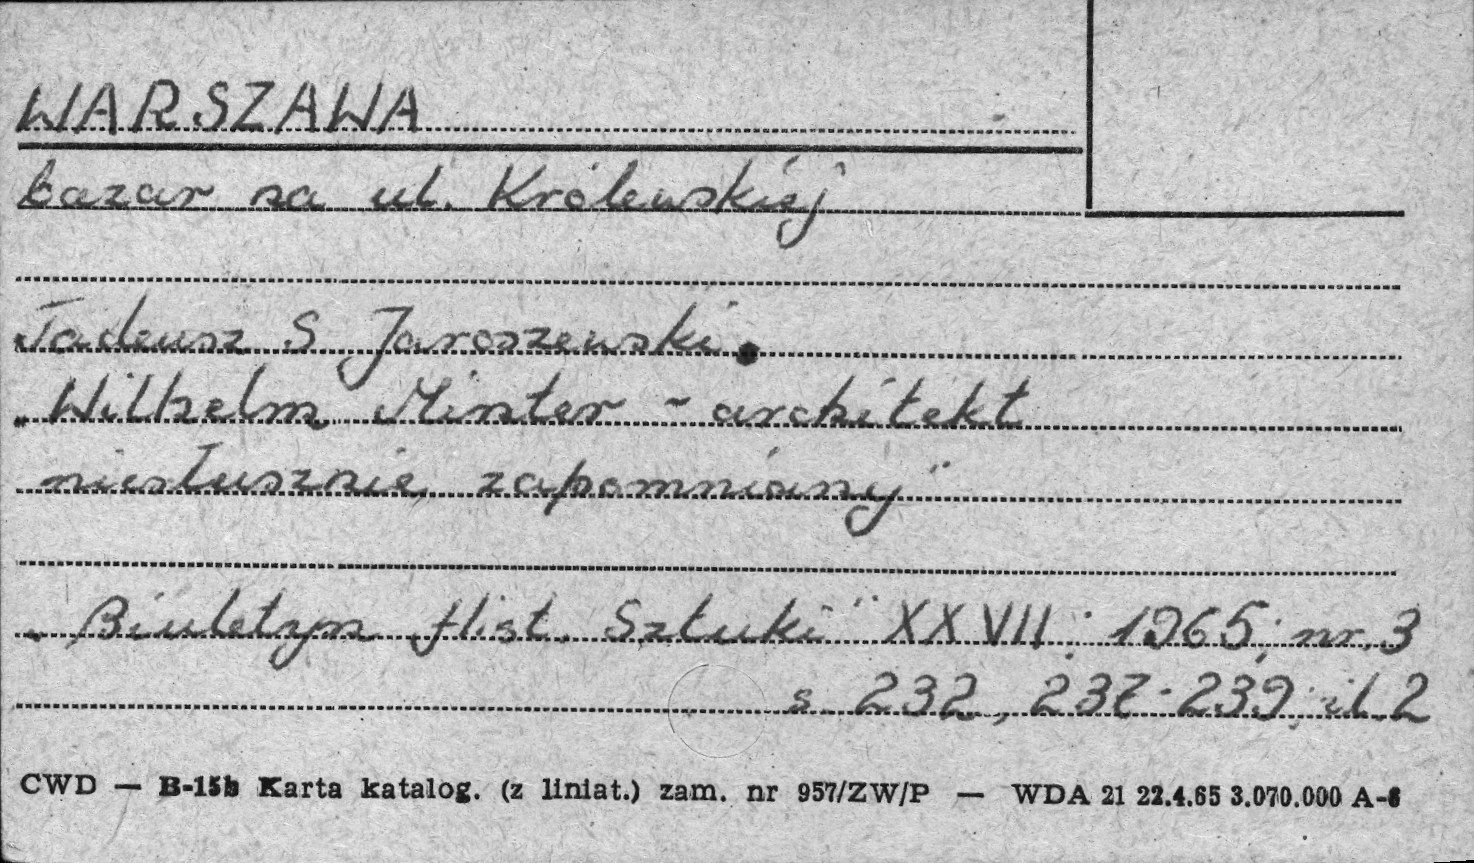 WARSZAWA
bazar na ul. Królewskiej
Tadeusz S Jaroszewski.
„Wilhelm Minter - architekt
niesłusznie zapomniany"
„Biuletyn Hist. Sztuki" XXVII : 1965; nr. 3
s. 232, 237-239; il. 2
CWD — B-15b Karta katalog. (z liniat.) zam. nr 957/ZW/P — WDA 21 22.4.65 3.070.000 A-6